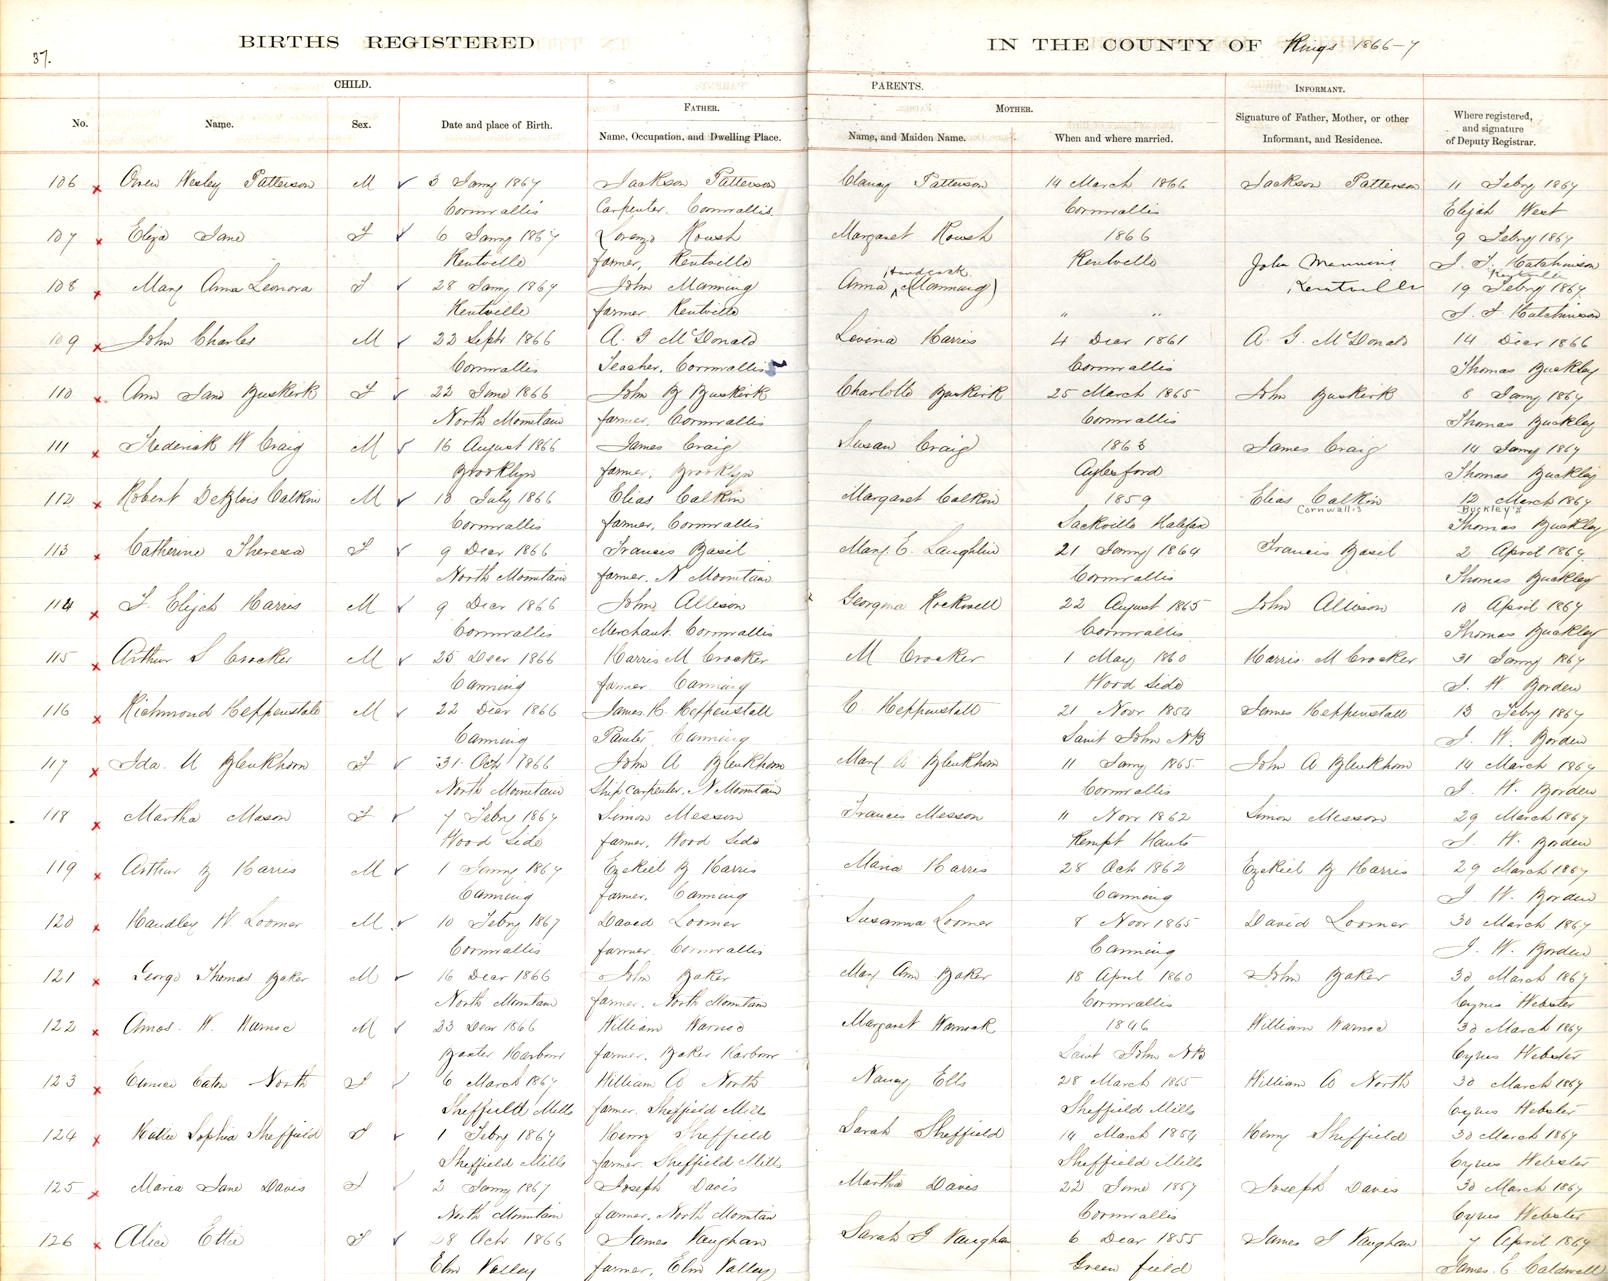 37.
BIRTHS REGISTERED IN THE COUNTY OF Kings 1866-7
CHILD. PARENTS.
FATHER. MOTHER. INFORMANT.
No. Name. Sex. Date and place of Birth. Name, Occupation, and Dwelling Place. Name, and Maiden Name. When and where married. Signature of Father, Mother, or other Informant, and Residence. Where registered, and signature of Deputy Registrar.
106 Owen Wesley Patterson M 3 Janry 1867 Jackson Patterson Clancy Patterson 14 March 1866 Jackson Patterson 11 Febry 1867
Cornwallis Carpenter. Cornwallis Cornwallis Elijah West
107 Eliza Jane F 6 Janry 1867 Lorenzo Roush Margaret Roush 1866 9 Febry 1867
Kentville farmer, Kentville Kentville J. F. Hutchinson
Kentville
108 Mary Anna Leonora F 28 Janry 1867 John Manning Anna Handcock (Manning) John Manning 19 Febry 1867
Kentville farmer Kentville " " Kentville J. F. Hutchinson
109 John Charles M 22 Sept 1866 A. G McDonald Levina Harris 4 Decr 1861 A. G. McDonald 14 Decr 1866
Cornwallis Teacher, Cornwallis Cornwallis Thomas Buckley
110 Ann Jane Buskirk F 22 June 1866 John B Buskirk Charlotte Buskirk 25 March 1865 John Buskirk 8 Janry 1867
North Mountain farmer, Cornwallis Cornwallis Thomas Buckley
111 Frederick W Craig M 16 August 1866 James Craig Susan Craig 1863 James Craig 14 Janry 1867
Brooklyn farmer, Brooklyn Aylesford Thomas Buckley
112 Robert DeBlois Calkin M 18 July 1866 Elias Calkin Margaret Calkin 1859 Elias Calkin 12 March 1867
Cornwallis Buckley's
Cornwallis farmer, Cornwallis Sackville Halifax Thomas Buckley
113 Catherine Theresa F 9 Decr 1866 Francis Basil Mary E. Laughlin 21 Janry 1864 Francis Basil 2 April 1867
North Mountain farmer. N Mountain Cornwallis Thomas Buckley
114 F. Elijah Harris M 9 Decr 1866 John Allison Georgina Rockwell 22 August 1865 John Allison 10 April 1867
Cornwallis Merchant. Cornwallis Cornwallis Thomas Buckley
115 Arthur S Crocker M 25 Decr 1866 Harris M Crocker M Crocker 1 May 1860 Harris M Crocker 31 Janry 1867
Canning farmer Canning Wood Side J. W. Borden
116 Richmond Heppenstall M 22 Decr 1866 James H. Heppenstall C Heppenstall 21 Novr 1854 James Heppenstall 13 Febry 1867
Canning Painter, Canning Saint John NB J. W. Borden
117 Ida. M Blenkhorn F 31 Oct 1866 John A Blenkhorn Mary A Blenkhorn 11 Janry 1865 John A Blenkhorn 14 March 1867
North Mountain Ship carpenter. N Mountain Cornwallis J. W. Borden
118 Martha Mason F 7 Febry 1867 Simon Messon Francis Messon 11 Novr 1862 Simon Messon 29 March 1867
Wood Side farmer, Wood Side Kempt Hants J. W. Borden
119 Arthur B Harris M 1 Janry 1867 Ezekiel B Harris Maria Harris 28 Oct 1862 Ezekiel B Harris 29 March 1867
Canning farmer. Canning Canning J. W. Borden
120 Handley W Loomer M 10 Febry 1867 David Loomer Susanna Loomer 8 Novr 1865 David Loomer 30 March 1867
Cornwallis farmer, Cornwallis Canning J. W. Borden
121 George Thomas Baker M 16 Decr 1866 John Baker Mary Ann Baker 18 April 1860 John Baker 30 March 1867
North Mountain farmer. North Mountain Cornwallis Cyrus Webster
122 Amos. W. Warnoc M 23 Decr 1866 William Warnoc Margaret Warnock 1846 William Warnoc 30 March 1867
Baxter Harbour farmer. Baker Harbour Saint John NB Cyrus Webster
123 Eunice Eaton North F 6 March 1867 William A North Nancy Ells 28 March 1865 William A North 30 March 1867
Sheffield Mills farmer. Sheffield Mills Sheffield Mills Cyrus Webster
124 Hattie Sophia Sheffield F 1 Febry 1867 Henry Sheffield Sarah Sheffield 14 March 1854 Henry Sheffield 30 March 1867
Sheffield Mills farmer. Sheffield Mills Sheffield Mills Cyrus Webster
125 Maria Jane Davis F 2 Janry 1867 Joseph Davis Martha Davis 22 June 1857 Joseph Davis 30 March 1867
North Mountain farmer. North Mountain Cornwallis Cyrus Webster
126 Alice Ettie F 28 Octr 1866 James Vaughan Sarah G Vaughan 6 Decr 1855 James S Vaughan 7 April 1867
Elm Valley farmer, Elm Valley Green field James. E. Caldwell